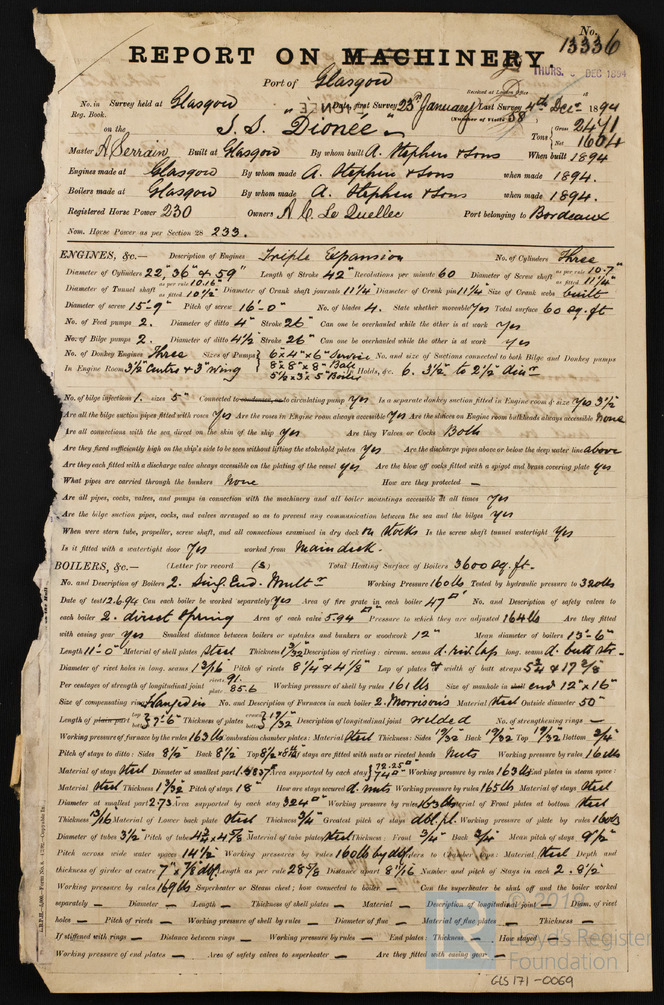 No. 13336
REPORT ON MACHINERY.
Port of Glasgow
Received at London Office
THURS. DEC 1894
No. in Survey held at Glasgow Date, first Survey 23rd January Last Survey 4th Dec 1894
Reg. Book. (Number of Visits 58)
on the S.S. "Dionée" Tons Gross 2471 Net 1604
Master A Serrain Built at Glasgow By whom built A. Stephen & Sons When built 1894
Engines made at Glasgow By whom made A. Stephen & Sons when made 1894.
Boilers made at Glasgow By whom made A. Stephen & Sons when made 1894.
Registered Horse Power 230 Owners A. C. Le Quellec Port belonging to Bordeaux
Nom. Horse Power as per Section 28 233.
ENGINES, &c.— Description of Engines Triple Expansion No. of Cylinders Three
Diameter of Cylinders 22", 36" & 59" Length of Stroke 42" Revolutions per minute 60 Diameter of Screw shaft as per rule 10.7" as fitted 11 1/4"
Diameter of Tunnel shaft as per rule 10.16" as fitted 10 1/2" Diameter of Crank shaft journals 11 1/4" Diameter of Crank pin 11 1/4" Size of Crank webs built
Diameter of screw 15'-9" Pitch of screw 16'-0" No. of blades 4. State whether moveable Yes Total surface 60 sq. ft
No. of Feed pumps 2. Diameter of ditto 4" Stroke 26" Can one be overhauled while the other is at work Yes
No. of Bilge pumps 2. Diameter of ditto 4 1/2" Stroke 26" Can one be overhauled while the other is at work Yes
No. of Donkey Engines Three Sizes of Pumps 6"x4"x6" Service No. and size of Suctions connected to both Bilge and Donkey pumps
8"x8"x8" Ball
In Engine Room 3 1/2" Centre & 3" Wing 5 1/4"x3"x5" Boiler Holds, &c. 6. 3 1/2" to 2 1/2" diar
No. of bilge injections 1. sizes 5" Connected to condenser, or to circulating pump Yes Is a separate donkey suction fitted in Engine room & size Yes 3 1/2
Are all the bilge suction pipes fitted with roses Yes Are the roses in Engine room always accessible Yes Are the sluices on Engine room bulkheads always accessible None
Are all connections with the sea direct on the skin of the ship Yes Are they Valves or Cocks Both
Are they fixed sufficiently high on the ship's side to be seen without lifting the stokehold plates Yes Are the discharge pipes above or below the deep water line above
Are they each fitted with a discharge valve always accessible on the plating of the vessel yes Are the blow off cocks fitted with a spigot and brass covering plate yes
What pipes are carried through the bunkers None How are they protected —
Are all pipes, cocks, valves, and pumps in connection with the machinery and all boiler mountings accessible at all times yes
Are the bilge suction pipes, cocks, and valves arranged so as to prevent any communication between the sea and the bilges yes
When were stern tube, propeller, screw shaft, and all connections examined in dry dock On Stocks Is the screw shaft tunnel watertight Yes
Is it fitted with a watertight door Yes worked from Main deck.
BOILERS, &c.— (Letter for record (S) Total Heating Surface of Boilers 3600 sq. ft.
No. and Description of Boilers 2. Sing. End. Multr Working Pressure 160 lbs Tested by hydraulic pressure to 320 lbs
Date of test 12.6.94 Can each boiler be worked separately Yes Area of fire grate in each boiler 47 □' No. and Description of safety valves to
each boiler 2. direct Spring Area of each valve 5.94 □" Pressure to which they are adjusted 164 lbs Are they fitted
with easing gear Yes Smallest distance between boilers or uptakes and bunkers or woodwork 12" Mean diameter of boilers 13'-6"
Length 11'-0" Material of shell plates Steel Thickness Description of riveting: circum. seams d. riv. lap long. seams d. butt str
Diameter of rivet holes in long. seams 1 3/16 Pitch of rivets 8 1/4 & 4 1/8" Lap of plates or width of butt straps
Per centages of strength of longitudinal joint rivets 91. plate 85.6 Working pressure of shell by rules 161 lbs Size of manhole in end 12" x 16"
Size of compensating ring flanged in No. and Description of Furnaces in each boiler 2. Morrisons Material Steel Outside diameter 50"
Length of plain part top bottom 7'-6" Thickness of plates crown bottom 17/32" Description of longitudinal joint welded No. of strengthening rings —
Working pressure of furnace by the rules 163 lbs Combustion chamber plates: Material Steel Thickness: Sides 19/32 Back 19/32 Top 19/32 Bottom 3/4"
Pitch of stays to ditto: Sides 8 1/2 Back 8 1/2 Top If stays are fitted with nuts or riveted heads Nuts Working pressure by rules 161 lbs
Material of stays Steel Diameter at smallest part Area supported by each stay 72.25 □" 74 □" Working pressure by rules 163 lbs End plates in steam space:
Material Steel Thickness Pitch of stays 18" How are stays secured d. nuts Working pressure by rules 165 lbs Material of stays Steel
Diameter at smallest part 2.73 Area supported by each stay 324 □" Working pressure by rules 163 lbs Material of Front plates at bottom Steel
Thickness 13/16 Material of Lower back plate Steel Thickness Greatest pitch of stays dbl. pl. Working pressure of plate by rules 160 lbs
Diameter of tubes 3 1/2 Pitch of tubes 4 3/4 x 4 5/8 Material of tube plates Steel Thickness: Front 3/4" Back 3/4" Mean pitch of stays 9 1/2"
Pitch across wide water spaces 14 1/2" Working pressures by rules 160 lb by dbl Girders to Chamber tops: Material Steel Depth and
thickness of girder at centre 7" x 7/8 dbl Length as per rule 28 5/8 Distance apart 8 9/16 Number and pitch of Stays in each 2. 8 1/2"
Working pressure by rules 169 lbs Superheater or Steam chest; how connected to boiler — Can the superheater be shut off and the boiler worked
separately — Diameter — Length — Thickness of shell plates — Material — Description of longitudinal joint — Diam. of rivet
holes — Pitch of rivets — Working pressure of shell by rules — Diameter of flue — Material of flue plates — Thickness —
If stiffened with rings — Distance between rings — Working pressure by rules — End plates: Thickness — How stayed
Working pressure of end plates — Area of safety valves to superheater — Are they fitted with easing gear —
© 2019
Lloyd's Register
Foundation
GLS 171-0069